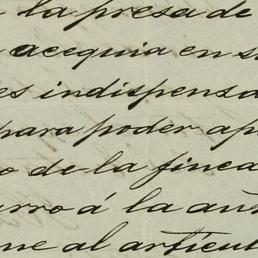 la presa de
acequia en su
es indispensa
para poder ap
o de la finca
arro á la au
ne al articul